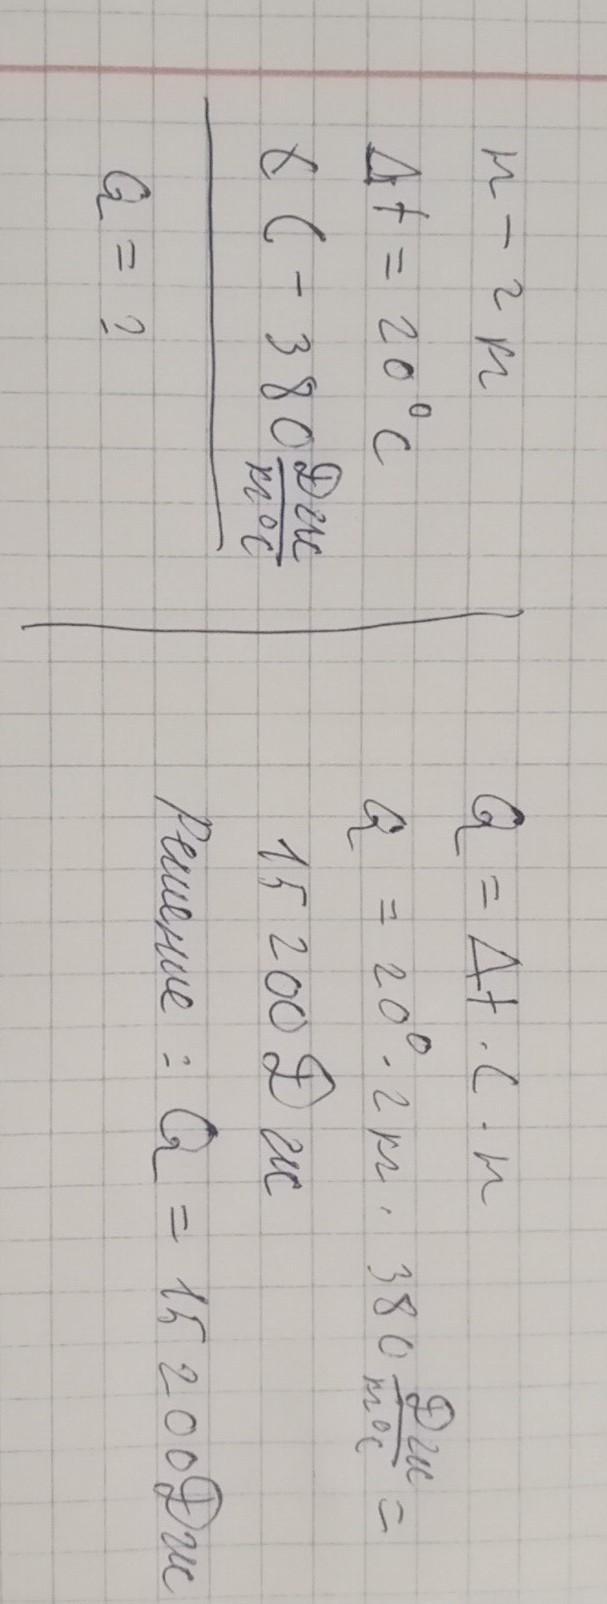 m - 2 m
Δt = 20°C
C - 380 Дж/m°C
Q = ?
Q = Δt · C · m
Q = 20° · 2 m · 380 Дж/m°C =
15 200 Дж
Решение : Q = 15 200 Дж